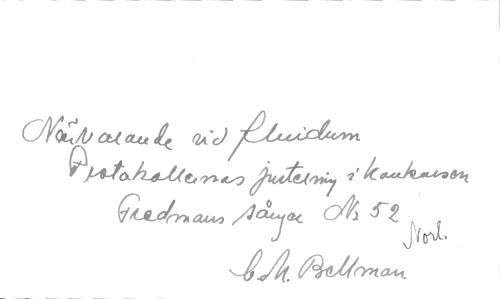 Närvarande vid fluidum
Protokollernas justering i konkursen
Fredmans sånger Nr 52
Norl.
C. M. Bellman